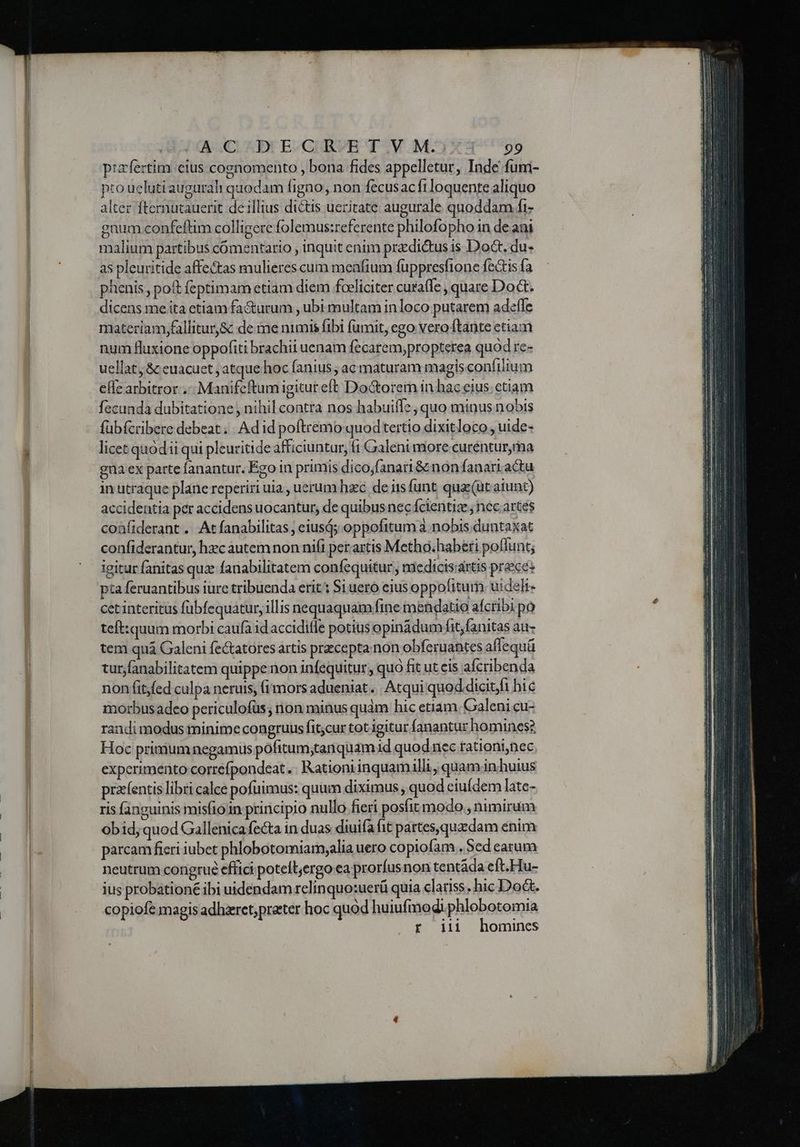 AC DECRETVM. 99
præſertim eius cognomento, bona fides appelletur, Inde ſum-
pto ueluti augurali quodam ſigno, non ſecus ac ſi loquente aliquo
alter ſternutauerit de illius dictis ueritate augurale quoddam ſi-
gnum confeſtim colligere ſolemus: referente philoſopho in de ani
malium partibus cōmentario, inquit enim prædictus is Doct. du-
as pleuritide affectas mulieres cum menſium ſuppresſione ſectis ſa
phenis, poſt ſeptimam etiam diem fœliciter curaſſe, quare Doct.
dicens me ita etiam facturum, ubi multam in loco putarem adeſſe
materiam, fallitur, & de me nimis ſibi ſumit, ego vero ſtante etiam
num fluxione oppoſiti brachii uenam ſecarem, propterea quòd re-
uellat, & euacuet, atque hoc ſanius, ac maturam magis conſilium
eſſe arbitror. Manifeſtum igitur eſt Doctorem in hac eius etiam
ſecunda dubitatione, nihil contra nos habuiſſe, quo minus nobis
ſubſcribere debeat. Ad id poſtremo quod tertio dixit loco, uide-
licet quòd ii qui pleuritide afficiuntur, ſi Galeni more curentur, ma
gna ex parte ſanantur. Ego in primis dico, ſanari & non ſanari actu
in utraque plane reperiri uia, uerum hæc de iis ſunt quæ (ut aiunt)
accidentia per accidens uocantur, de quibus nec ſcientiæ, nec artes
conſiderant. At ſanabilitas, eiusq; oppoſitum à nobis duntaxat
conſiderantur, hæc autem non niſi per artis Metho. haberi poſſunt,
igitur ſanitas quæ ſanabilitatem conſequitur, medicis artis præce-
pta ſeruantibus iure tribuenda erit: Si uero eius oppoſitum uideli-
cet interitus ſubſequatur, illis nequaquam ſine mendatio aſcribi po
teſt: quum morbi cauſa id accidiſſe potius opinādum ſit, ſanitas au-
tem quā Galeni ſectatores artis præcepta non obſeruantes aſſequū
tur, ſanabilitatem quippe non inſequitur, quo fit ut eis aſcribenda
non ſit, ſed culpa neruis, ſi mors adueniat. Atqui quod dicit, ſi hic
morbus adeo periculoſus, non minus quàm hic etiam Galeni cu-
randi modus minime congruus ſit, cur tot igitur ſanantur homines?
Hoc primum negamus poſitum, tanquam id quod nec rationi, nec
experimento correſpondeat. Rationi inquam illi, quam in huius
præſentis libri calce poſuimus: quum diximus, quod eiuſdem late-
ris ſanguinis misſio in principio nullo fieri posſit modo, nimirum
ob id, quod Gallenica ſecta in duas diuiſa ſit partes, quædam enim
parcam fieri iubet phlobotomiam, alia uero copioſam. Sed earum
neutrum congruè effici poteſt, ergo ea prorſus non tentāda eſt. Hu-
ius probationē ibi uidendam relinquo: uerū quia clariss. hic Doct.
copioſè magis adhæret, præter hoc quòd huiuſmodi phlobotomia
r iii homines